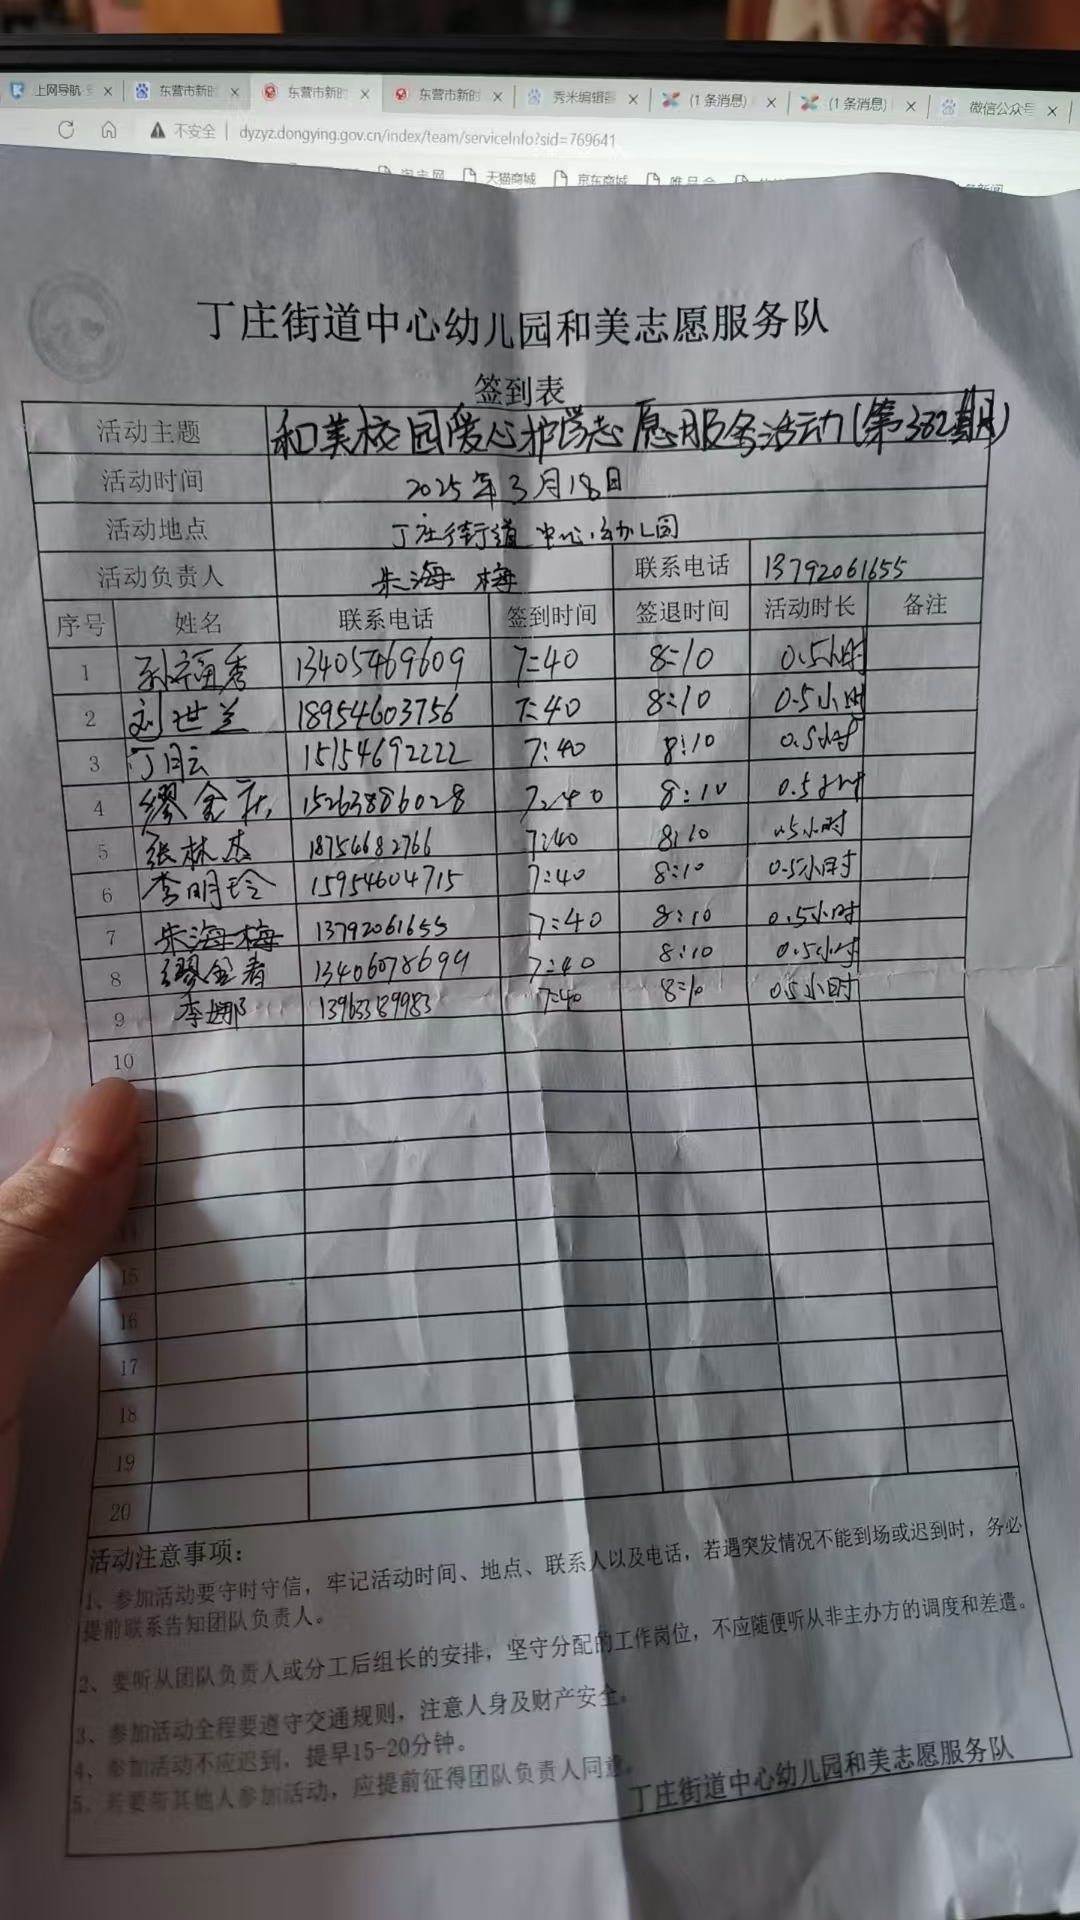 上网导航 东营市新时 东营市新时 东营市新时 秀米编辑器 (1 条消息) (1 条消息) 微信公众号
不安全 dyzyz.dongying.gov.cn/index/team/serviceInfo?sid=769641
淘宝网 天猫商城 京东商城 唯品会
丁庄街道中心幼儿园和美志愿服务队
签到表
活动主题 和美校园爱心护学志愿服务活动(第382期)
活动时间 2025年3月18日
活动地点 丁庄街道中心幼儿园
活动负责人 朱海梅 联系电话 13792061655
序号 姓名 联系电话 签到时间 签退时间 活动时长 备注
1 孙福秀 13405469609 7:40 8:10 0.5小时
2 刘世兰 18954603756 7:40 8:10 0.5小时
3 丁月云 15154692222 7:40 8:10 0.5小时
4 缪金 15263886028 7:40 8:10 0.5小时
5 张林杰 18754682766 7:40 8:10 0.5小时
6 李明玲 15954604715 7:40 8:10 0.5小时
7 朱海梅 13792061655 7:40 8:10 0.5小时
8 缪金者 13406078699 7:40 8:10 0.5小时
9 李娜 13963389983 7:40 8:10 0.5小时
10
15
16
17
18
19
20
活动注意事项：
1、参加活动要守时守信，牢记活动时间、地点、联系人以及电话，若遇突发情况不能到场或迟到时，务必
提前联系告知团队负责人。
2、要听从团队负责人或分工后组长的安排，坚守分配的工作岗位，不应随便听从非主办方的调度和差遣。
3、参加活动全程要遵守交通规则，注意人身及财产安全。
4、参加活动不应迟到，提早15-20分钟。
5、若要带其他人参加活动，应提前征得团队负责人同意。
丁庄街道中心幼儿园和美志愿服务队